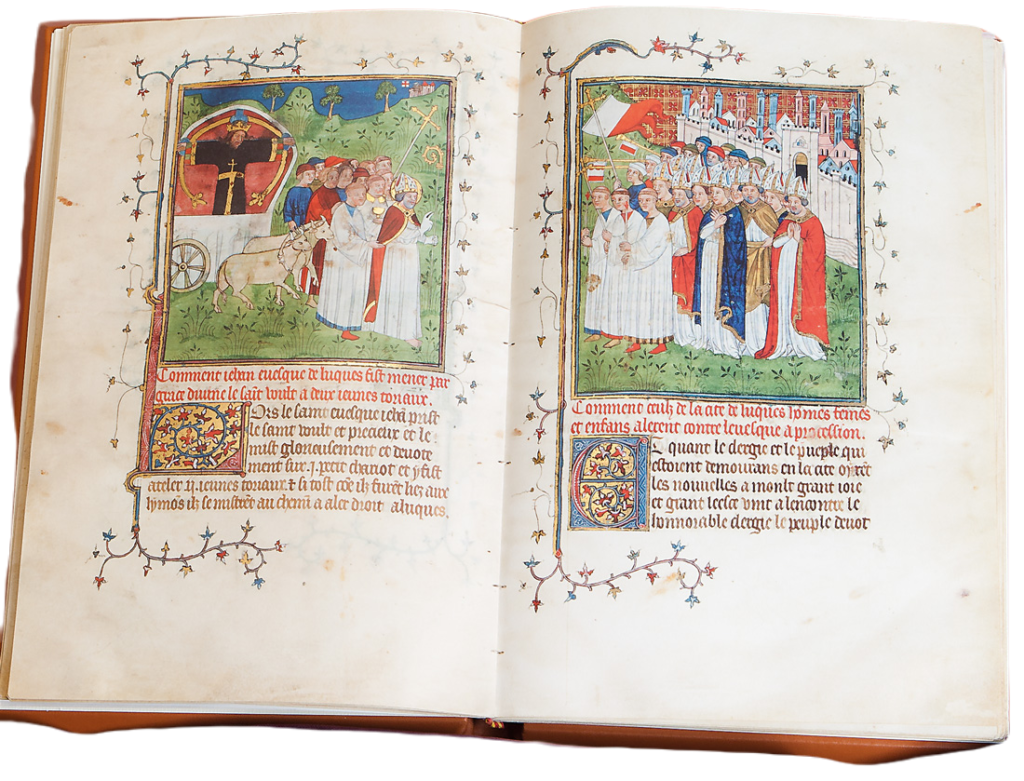 Comment iehan euesque de luques fist mener par
grace diuine le saīt voult a deux ieunes toriaux.
Ors le saint euesque iehā prist
le saint voult et precieux et le
mist glorieusement et deuote
ment sur .j. petit chariot et y fist
ateler .ij. ieunes toriaux. & si tost cōe ilz furēt liez aux
lymōs ilz se mistrēt au chemī a aler droit a luques.
Comment ceulz de la cite de luques hōmes fēmes
et enfans alerent contre leuesque a procession.
Et quant le clergie et le pueple qui
estoient demourans en la cite oyrēt
les nouuelles a moult grant ioie
et grant leesce vint a lencontre le
honnorable clergie le peuple deuot